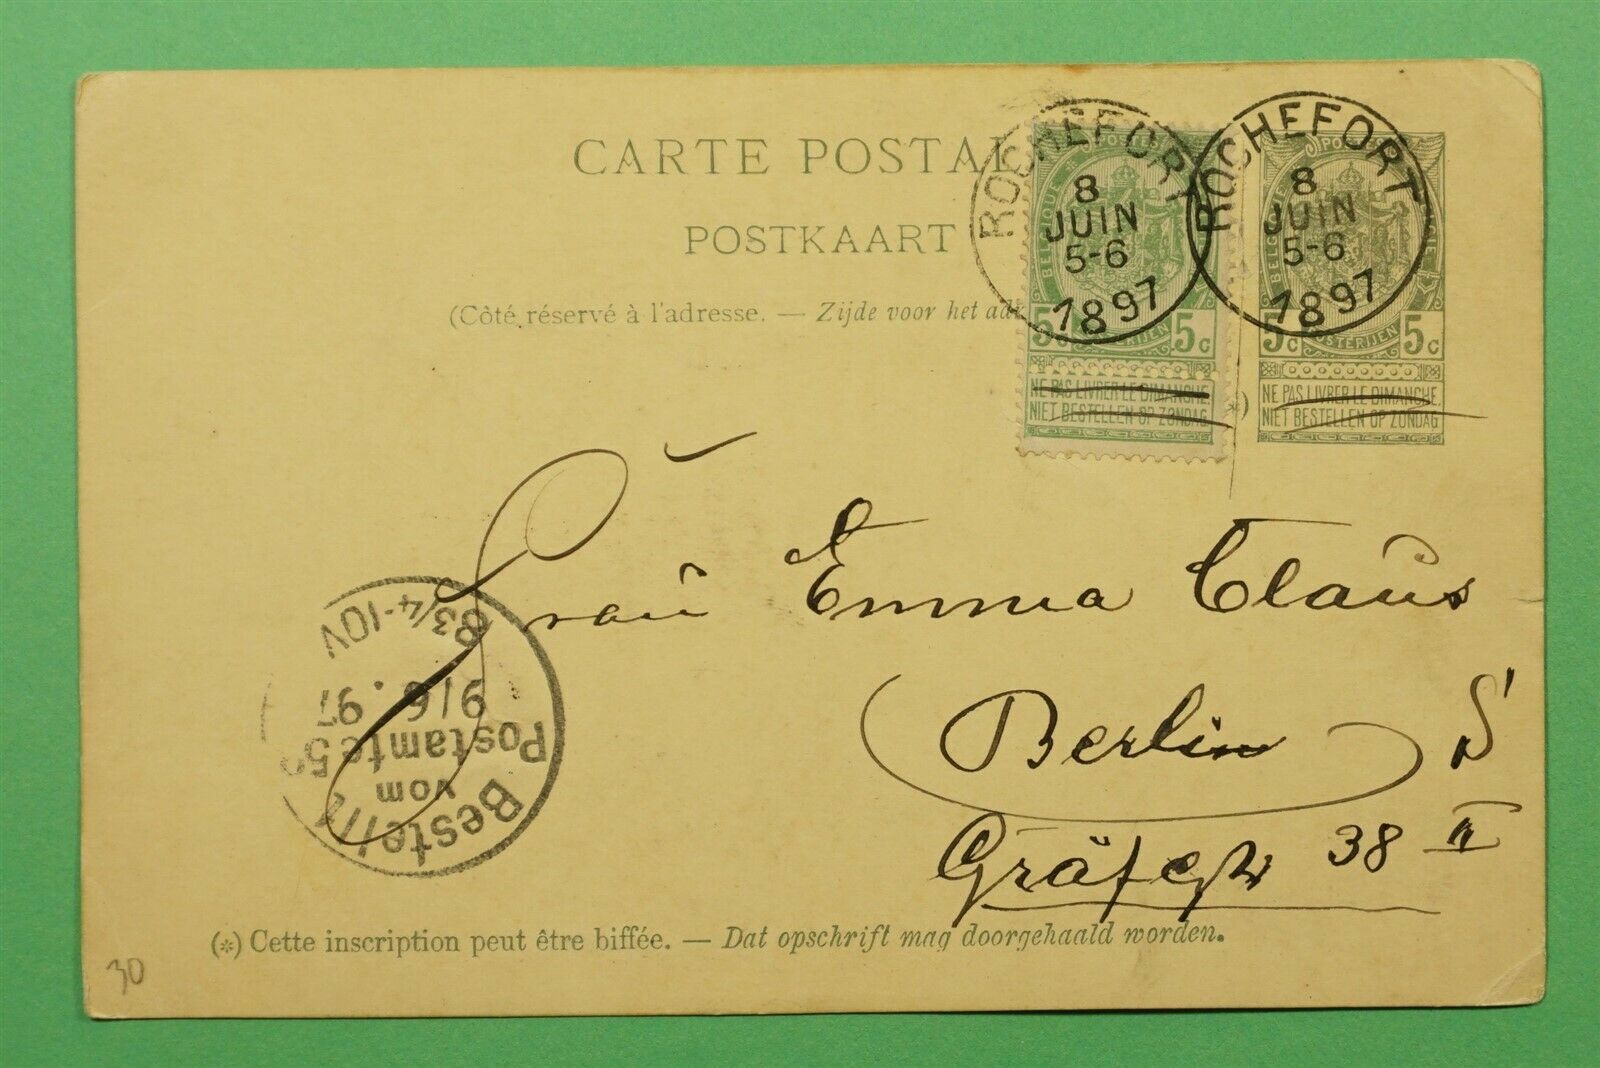 CARTE POSTAL
POSTKAART
(Côté réservé à l'adresse. — Zijde voor het adr
ROCHEFORT
8
JUIN
5-6
1897
ROCHEFORT
8
JUIN
5-6
1897
5c 5c
NE PAS LIVRER LE DIMANCHE.
NIET BESTELLEN OP ZONDAG
5c POSTERIJEN 5c
NE PAS LIVRER LE DIMANCHE.
NIET BESTELLEN OP ZONDAG
*)
Frau Emma Claus
Berlin S
Gräfestr 38 II
Bestellt
vom
Postamte 59
9/6. 97
8 3/4-10V
(*) Cette inscription peut être biffée. — Dat opschrift mag doorgehaald worden.
30